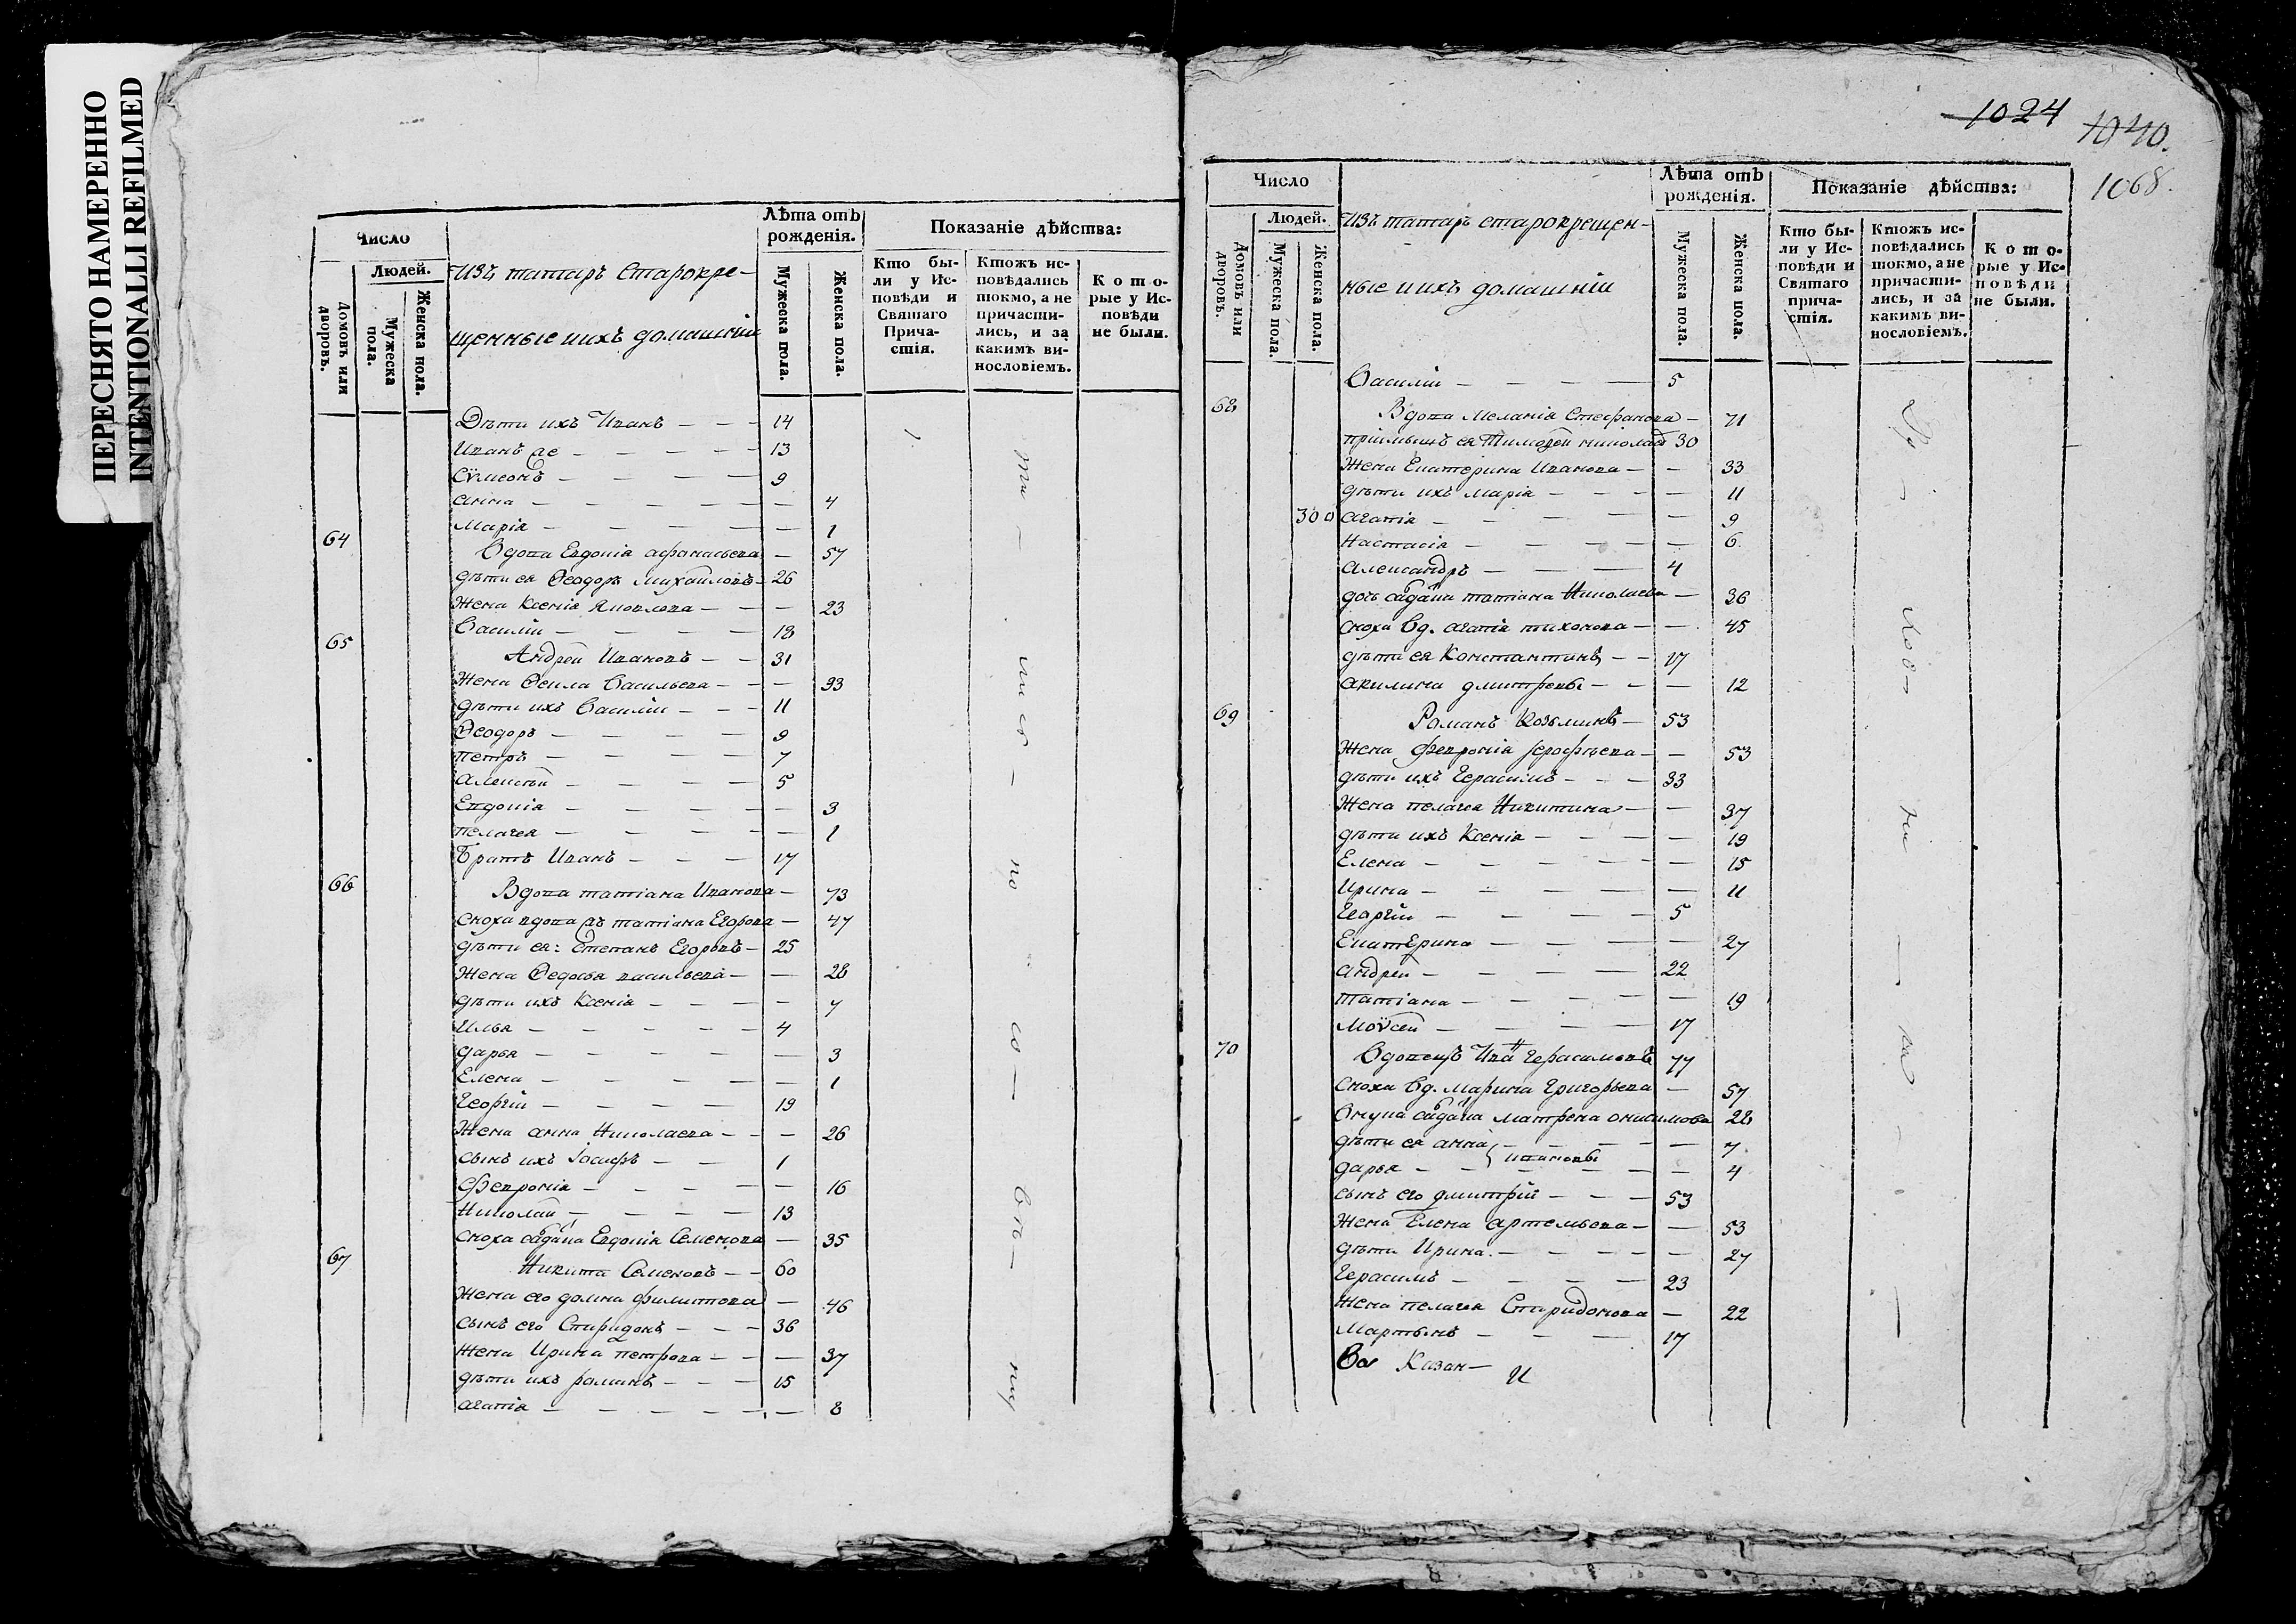 ПЕРЕСНЯТО НАМЕРЕННО
INTENTIONALLI REFILMED
Число
Людей.
Домовъ или дворовъ.
Мужеска пола.
Женска пола.
изъ татаръ старокре-
щенные и ихъ домашніи
Лѣта отъ рожденія.
Мужеска пола.
Женска пола.
Показаніе дѣйства:
Кто бы-
ли у Ис-
повѣди и
Святаго
Прича-
стія.
Ктожъ ис-
повѣдались
токмо, а не
причасти-
лись, и за
какимъ ви-
нословіемъ.
К о т о-
рые у Ис-
повѣди
не были.
Дѣти ихъ Иванъ — — — 14
Иванъ же — — — — — 13
Сѵмеонъ — — — — 9
Анна — — — — — — 4
Марія — — — — — 1
64 Вдова Евдокія Афанасьева — 57
дѣти ея Ѳеодоръ Михайловъ — 26
Жена Ксенія Яковлева — — — 23
Василій — — — — 18
65 Андрей Ивановъ — — 31
Жена Ѳекла Васильева — — — 33
дѣти ихъ Василій — — — 11
Ѳеодоръ — — — — 9
Петръ — — — — 7
Алексѣй — — — — 5
Евдокія — — — — — 3
Пелагея — — — — — 1
Братъ Иванъ — — — 17
66 Вдова Татіана Иванова — 73
Сноха вдова жъ Татіана Егорова — 47
дѣти ея: Степанъ Егоровъ — 25
Жена Ѳедосья Васильева — — 28
дѣти ихъ Ксенія — — — — 7
Илья — — — — — 4
Дарья — — — — — 3
Елена — — — — — 1
Георгій — — — — 19
Жена Анна Николаева — — — 26
сынъ ихъ Іосифъ — — 1
Февронія — — — — — 16
Николай — — — — 13
Сноха Евдокія Семенова — 35
67 Никита Семеновъ — — 60
Жена его Домна Филиппова — 46
сынъ его Спиридонъ — — — 36
Жена Ирина Петрова — — — 37
дѣти ихъ Романъ — — — 15
Агапія — — — — — — 8
1024
1040.
1068.
Число
Людей.
Домовъ или дворовъ.
Мужеска пола.
Женска пола.
изъ татаръ старокрещен-
ные и ихъ домашніи
Лѣта отъ рожденія.
Мужеска пола.
Женска пола.
Показаніе дѣйства:
Кто бы-
ли у Ис-
повѣди и
Святаго
прича-
стія.
Ктожъ ис-
повѣдались
токмо, а не
причасти-
лись, и за
какимъ ви-
нословіемъ.
К о т о-
рые у Ис-
повѣди
не были.
Василій — — — — 5
68 Вдова Меланія Стефанова — 71
пріимышъ ея Тимоѳей Николаев 30
Жена Екатерина Иванова — — 33
дѣти ихъ Марія — — — — 11
300 Агапія — — — — — 9
Настасія — — — — — 6
Александръ — — — 4
дочь Татіана Николаева — 36
Сноха вд. Агапія Тихонова — — 45
дѣти ея Константинъ — — 17
Акилина Дмитревы — — — 12
69 Романъ Козьминъ — 53
Жена Феврония Ерофѣева — — 53
дѣти ихъ Герасимъ — — — 33
Жена Пелагея Никитина — — 37
дѣти ихъ Ксенія — — — — 19
Елена — — — — — — 15
Ирина — — — — — 11
Георгій — — — — 5
Екатерина — — — — — 27
Андрей — — — — 22
Татіана — — — — — 19
Моѵсей — — — — 17
70 Вдовецъ Иванъ Герасимовъ 77
Сноха вд. Марина Григорьева — 57
Внука Матрена Онисимова 28
дѣти ея Анна — — — — — 7
Ивановы
Дарья — — — — — — 4
сынъ его Дмитрій — — — 53
Жена Елена Артемьева — — 53
дѣти Ирина. — — — — — 27
Герасимъ — — — — 23
Жена Пелагея Спиридонова — 22
Мартынъ — — — 17
Во Казан — и